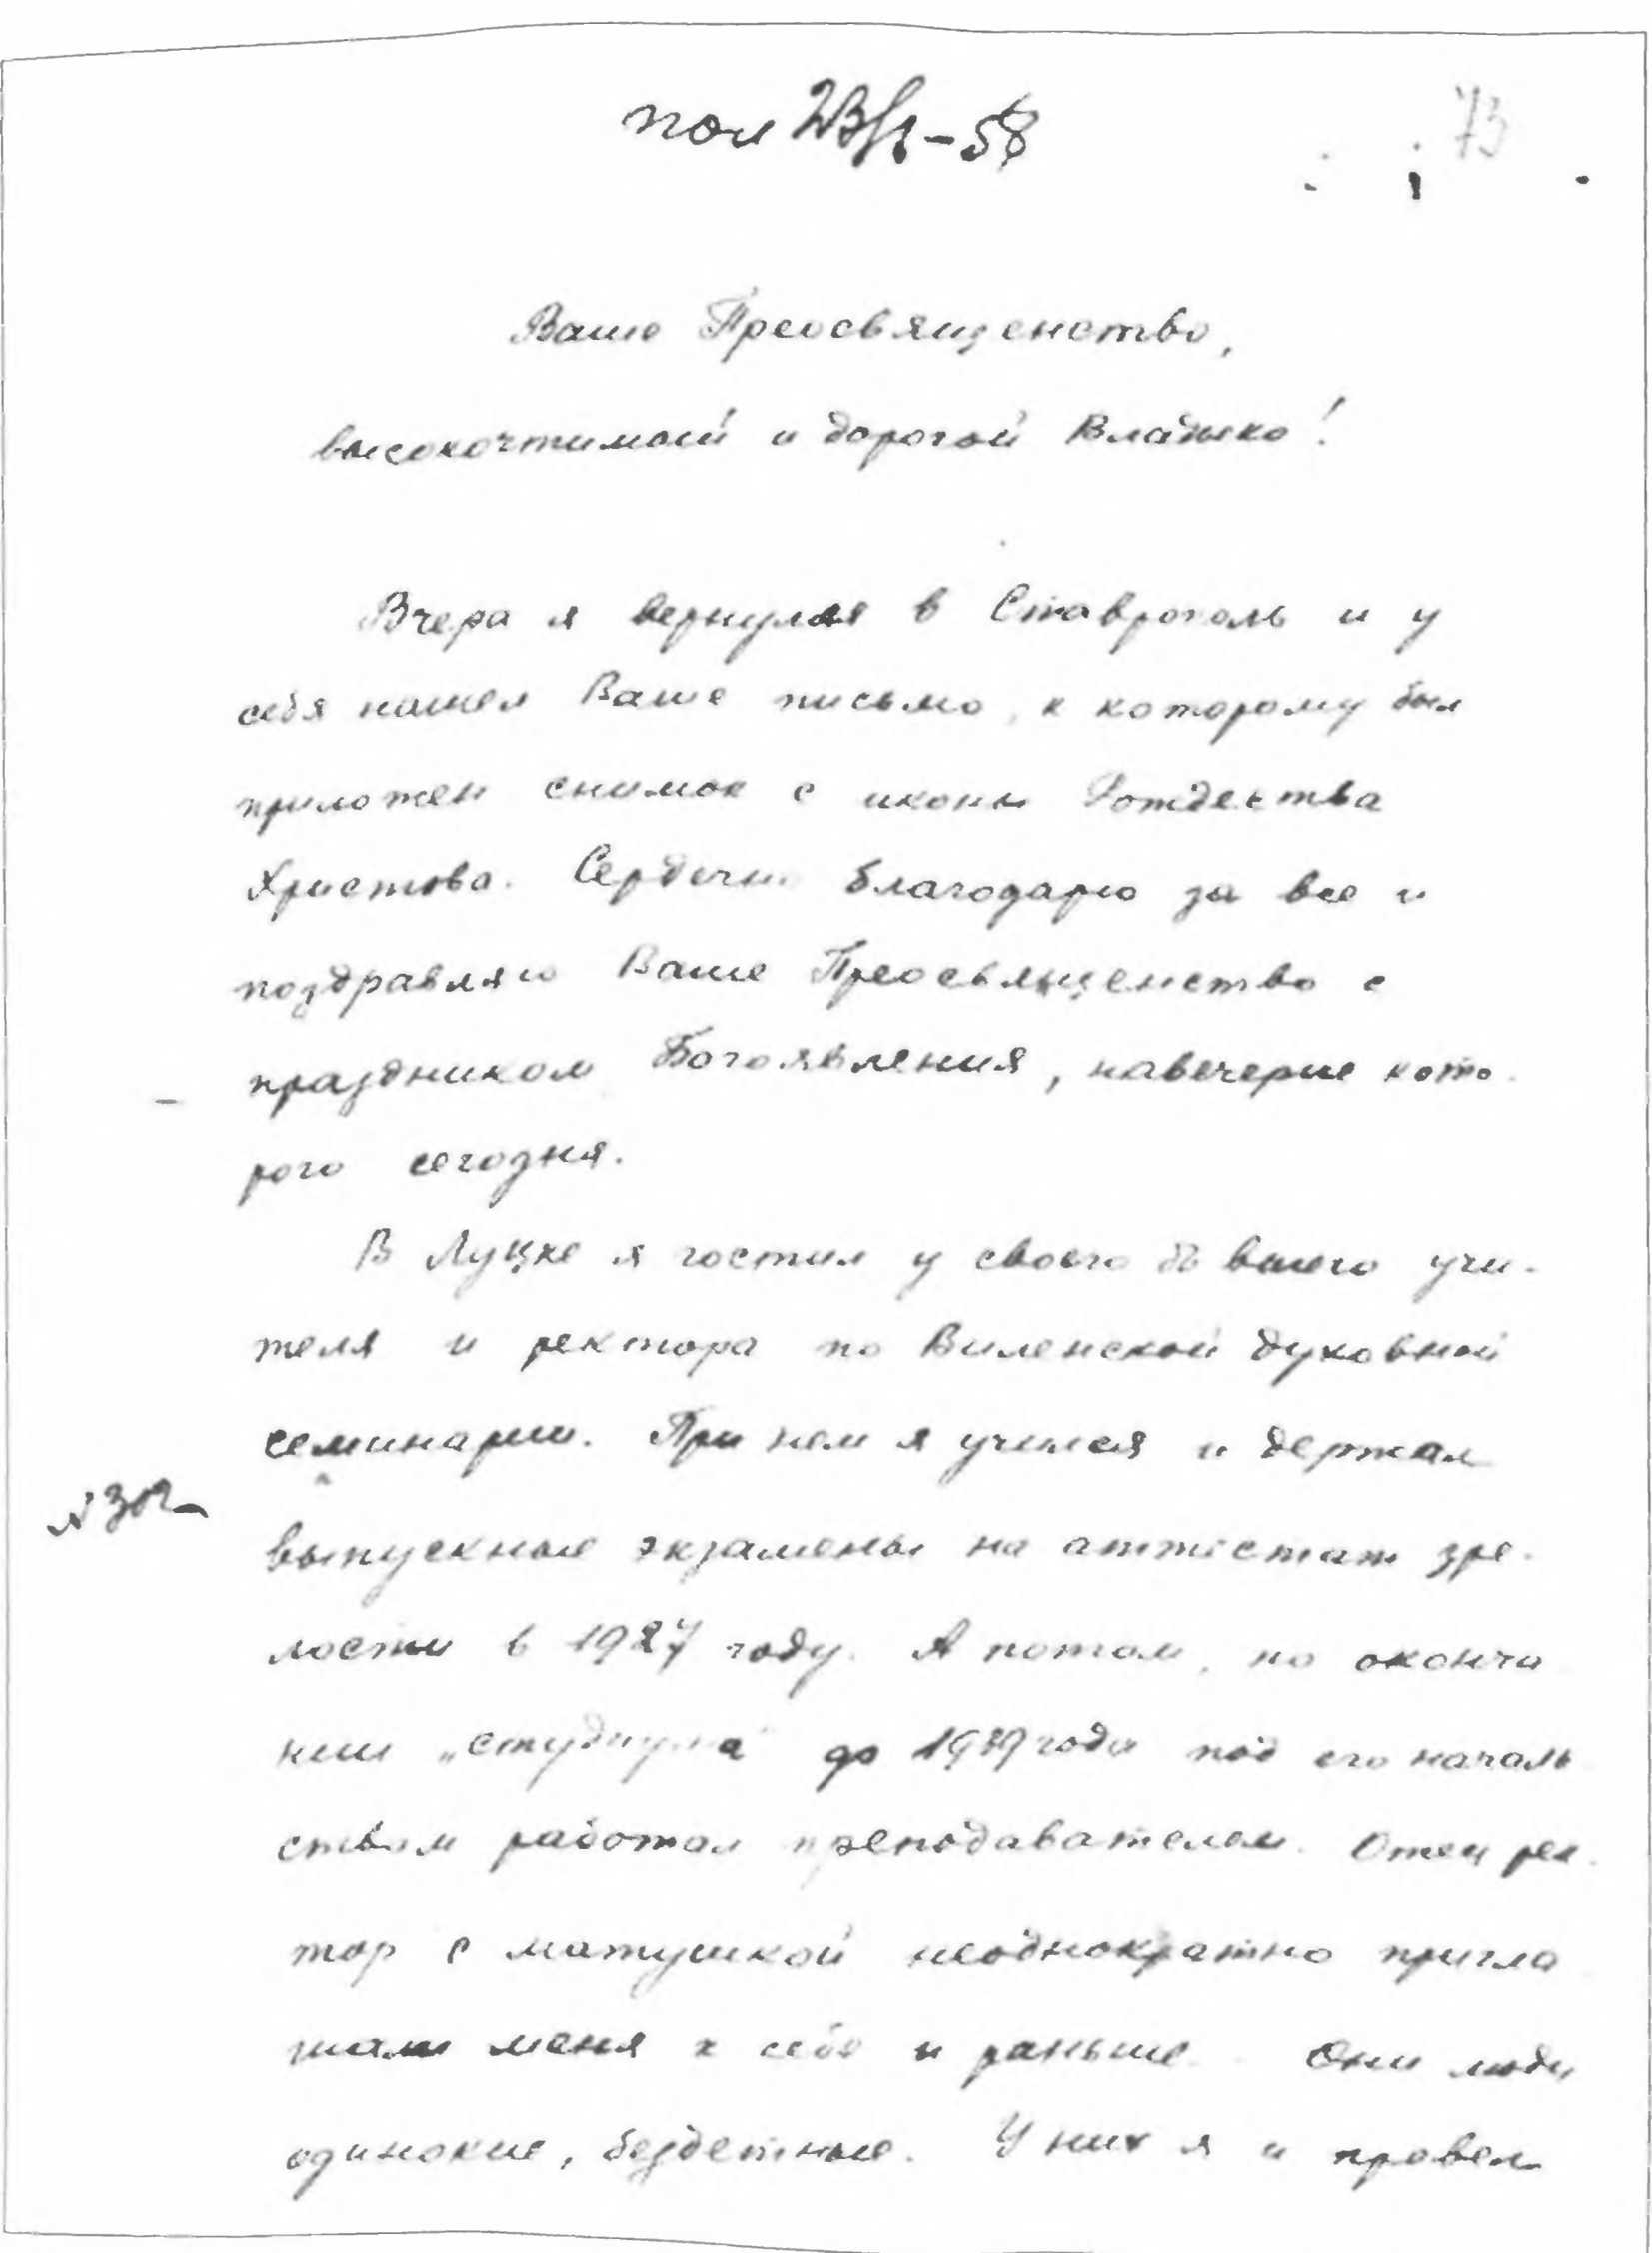 пол 23/1-58
73
Ваше Преосвященство,
высокочтимый и дорогой Владыко!
Вчера я вернулся в Ставрополь и у
себя нашел Ваше письмо, к которому был
приложен снимок с иконы Рождества
Христова. Сердечно благодарю за все и
поздравляю Ваше Преосвященство с
праздником Богоявления, навечерие кото-
рого сегодня.
В Луцке я гостил у своего бывшего учи-
теля и ректора по Виленской духовной
семинарии. При нем я учился и держал
выпускные экзамены на аттестат зре-
лости в 1927 году. А потом, по оконча
нии „студиума" до 1939 года под его началь
ством работал преподавателем. Отец рек-
тор с матушкой неоднократно пригла
шали меня к себе и раньше. Они люди
одинокие, бездетные. У них я и провел